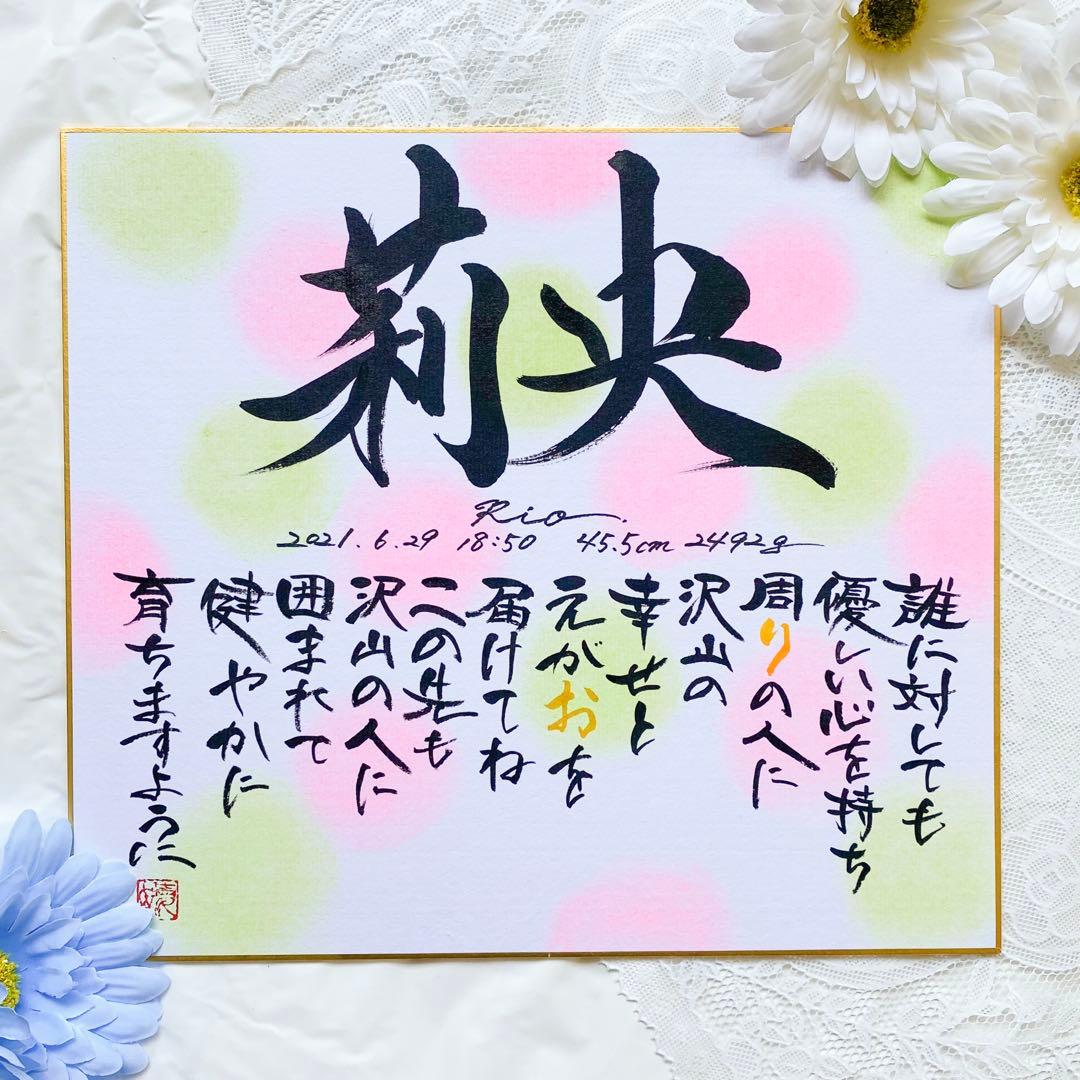 莉央
Rio.
2021.6.29 18:50 45.5cm 2492g
誰に対しても
優しい心を持ち
周りの人に
沢山の
幸せと
えがおを
届けてね
この先も
沢山の人に
囲まれて
健やかに
育ちますように